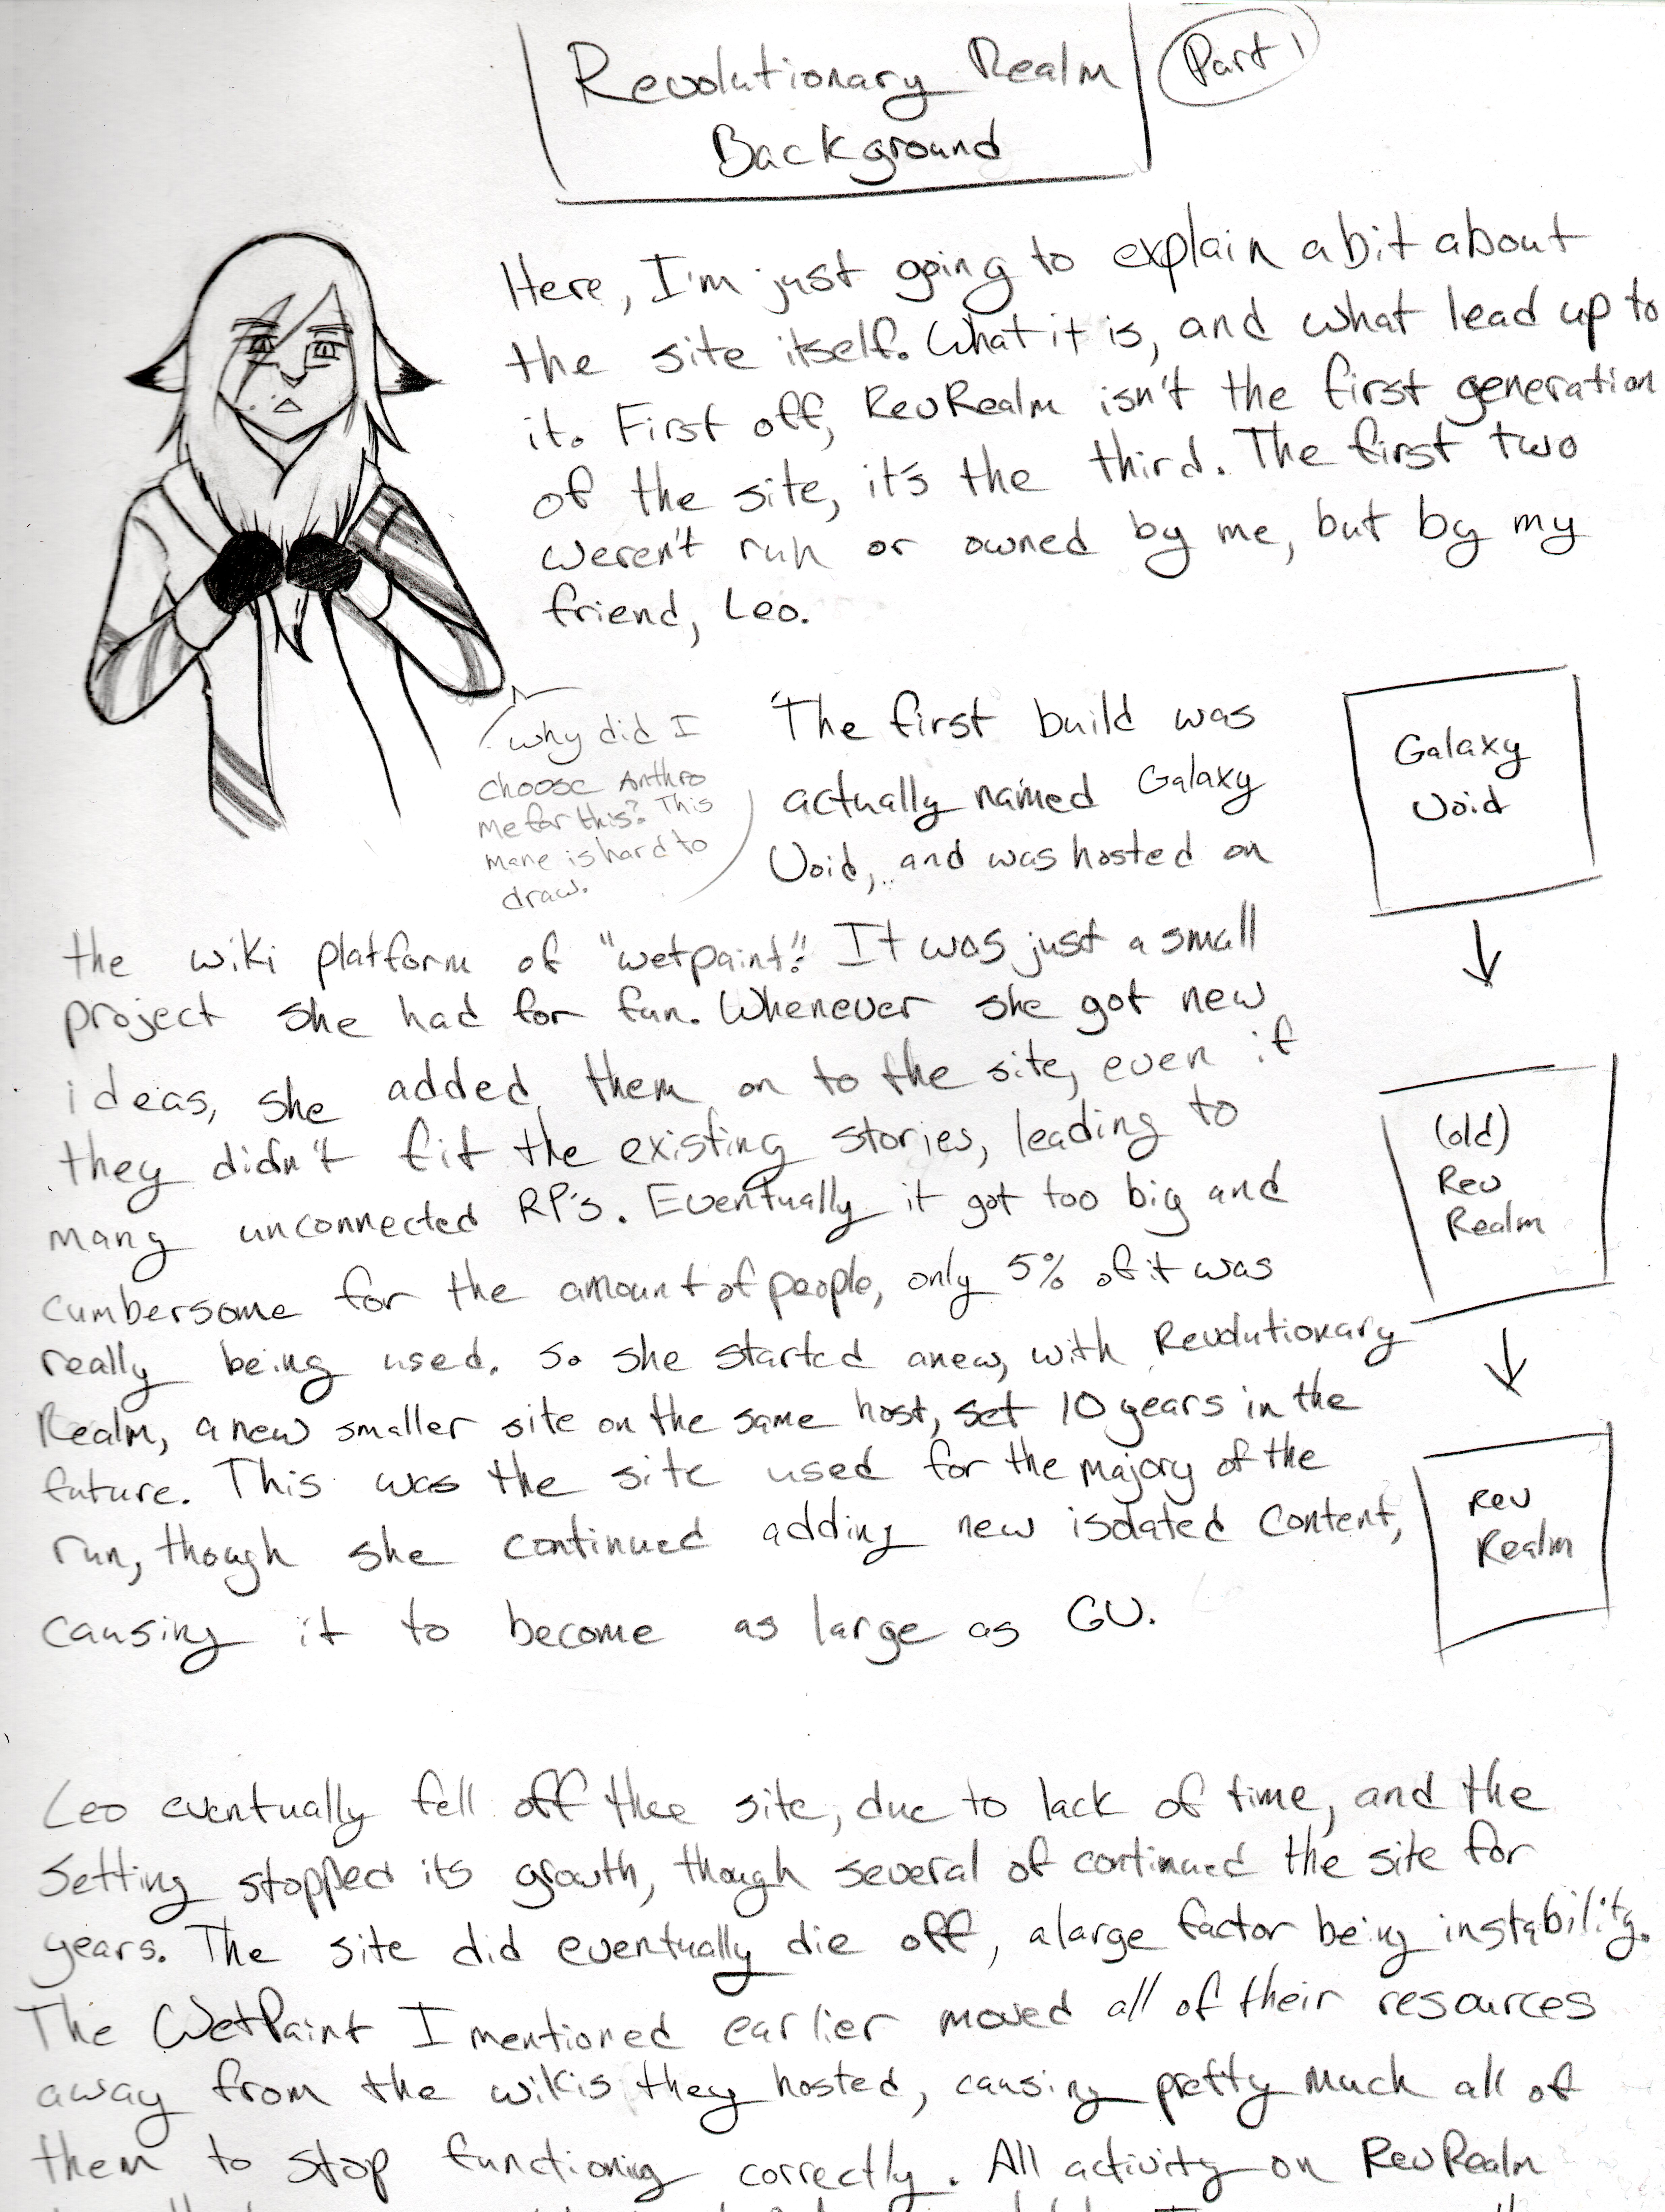 Revolutionary Realm
Background
Part 1
Here, I'm just going to explain a bit about
the site itself. What it is, and what lead up to
it. First off, RevRealm isn't the first generation
of the site, it's the third. The first two
weren't run or owned by me, but by my
friend, Leo.
why did I
choose Anthro
me for this? This
mane is hard to
draw.
The first build was
actually named Galaxy
Void, and was hosted on
the wiki platform of "wetpaint". It was just a small
project she had for fun. Whenever she got new
ideas, she added them on to the site, even if
they didn't fit the existing stories, leading to
many unconnected RP's. Eventually it got too big and
cumbersome for the amount of people, only 5% of it was
really being used. So she started anew, with Revolutionary
Realm, a new smaller site on the same host, set 10 years in the
future. This was the site used for the majory of the
run, though she continued adding new isolated content,
causing it to become as large as GV.
Galaxy
Void
(old)
Rev
Realm
Rev
Realm
Leo eventually fell off thee site, due to lack of time, and the
setting stopped its growth, though several of continued the site for
years. The site did eventually die off, a large factor being instability.
The WetPaint I mentioned earlier moved all of their resources
away from the wikis they hosted, causing pretty much all of
them to stop functioning correctly. All activity on RevRealm